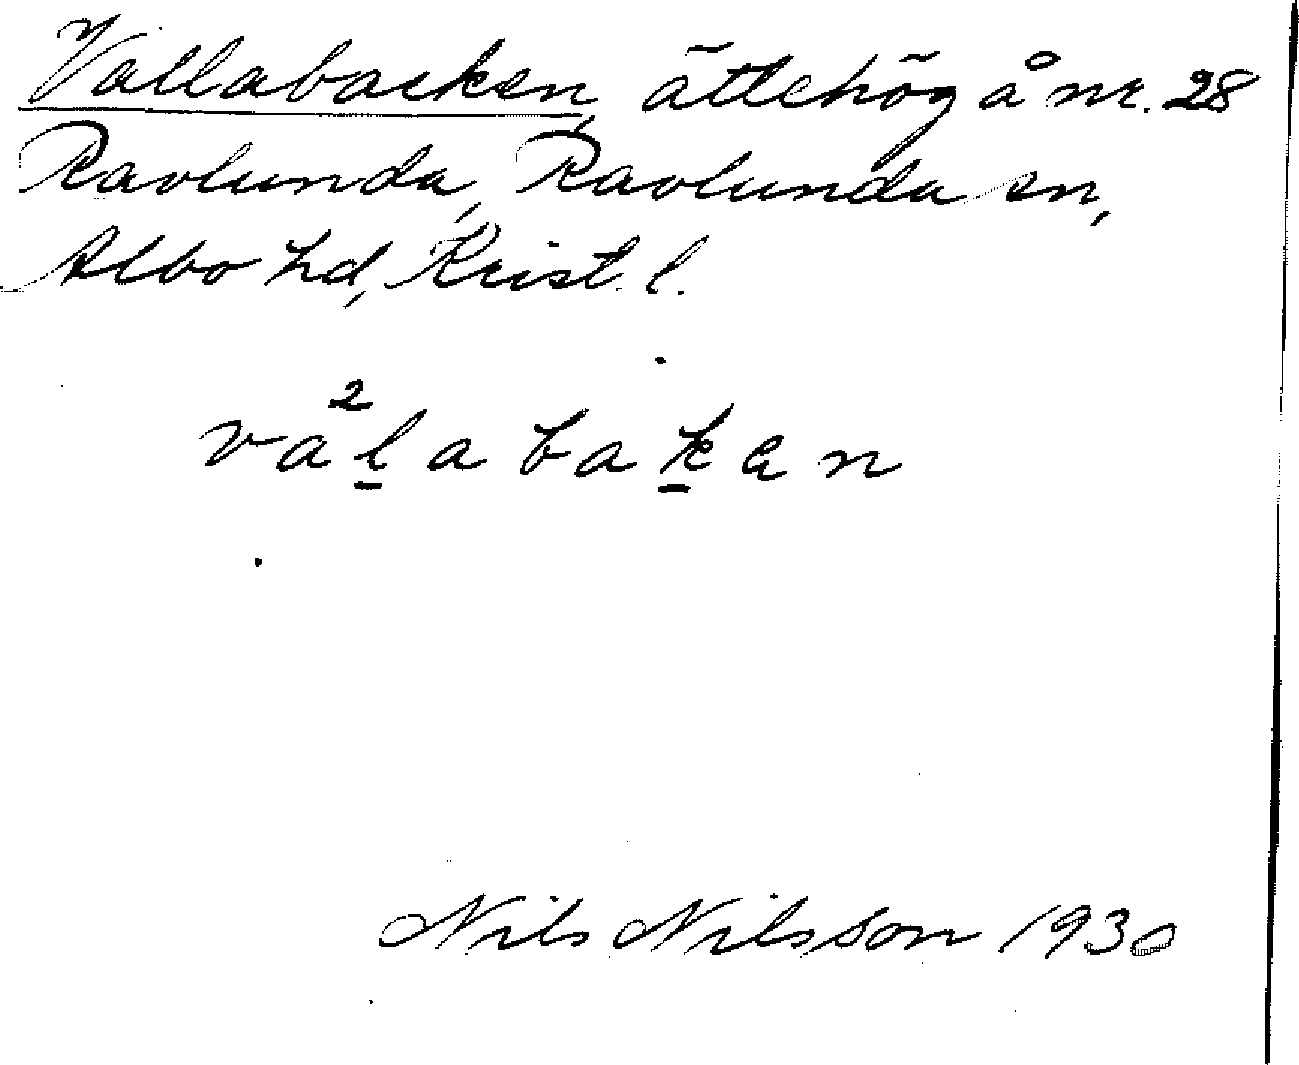 Vallabacken, ättehög å nr. 28
Ravlunda, Ravlunda sn,
Albo hd, Krist. l.
va²l̲abak̲en
Nils Nilsson 1930